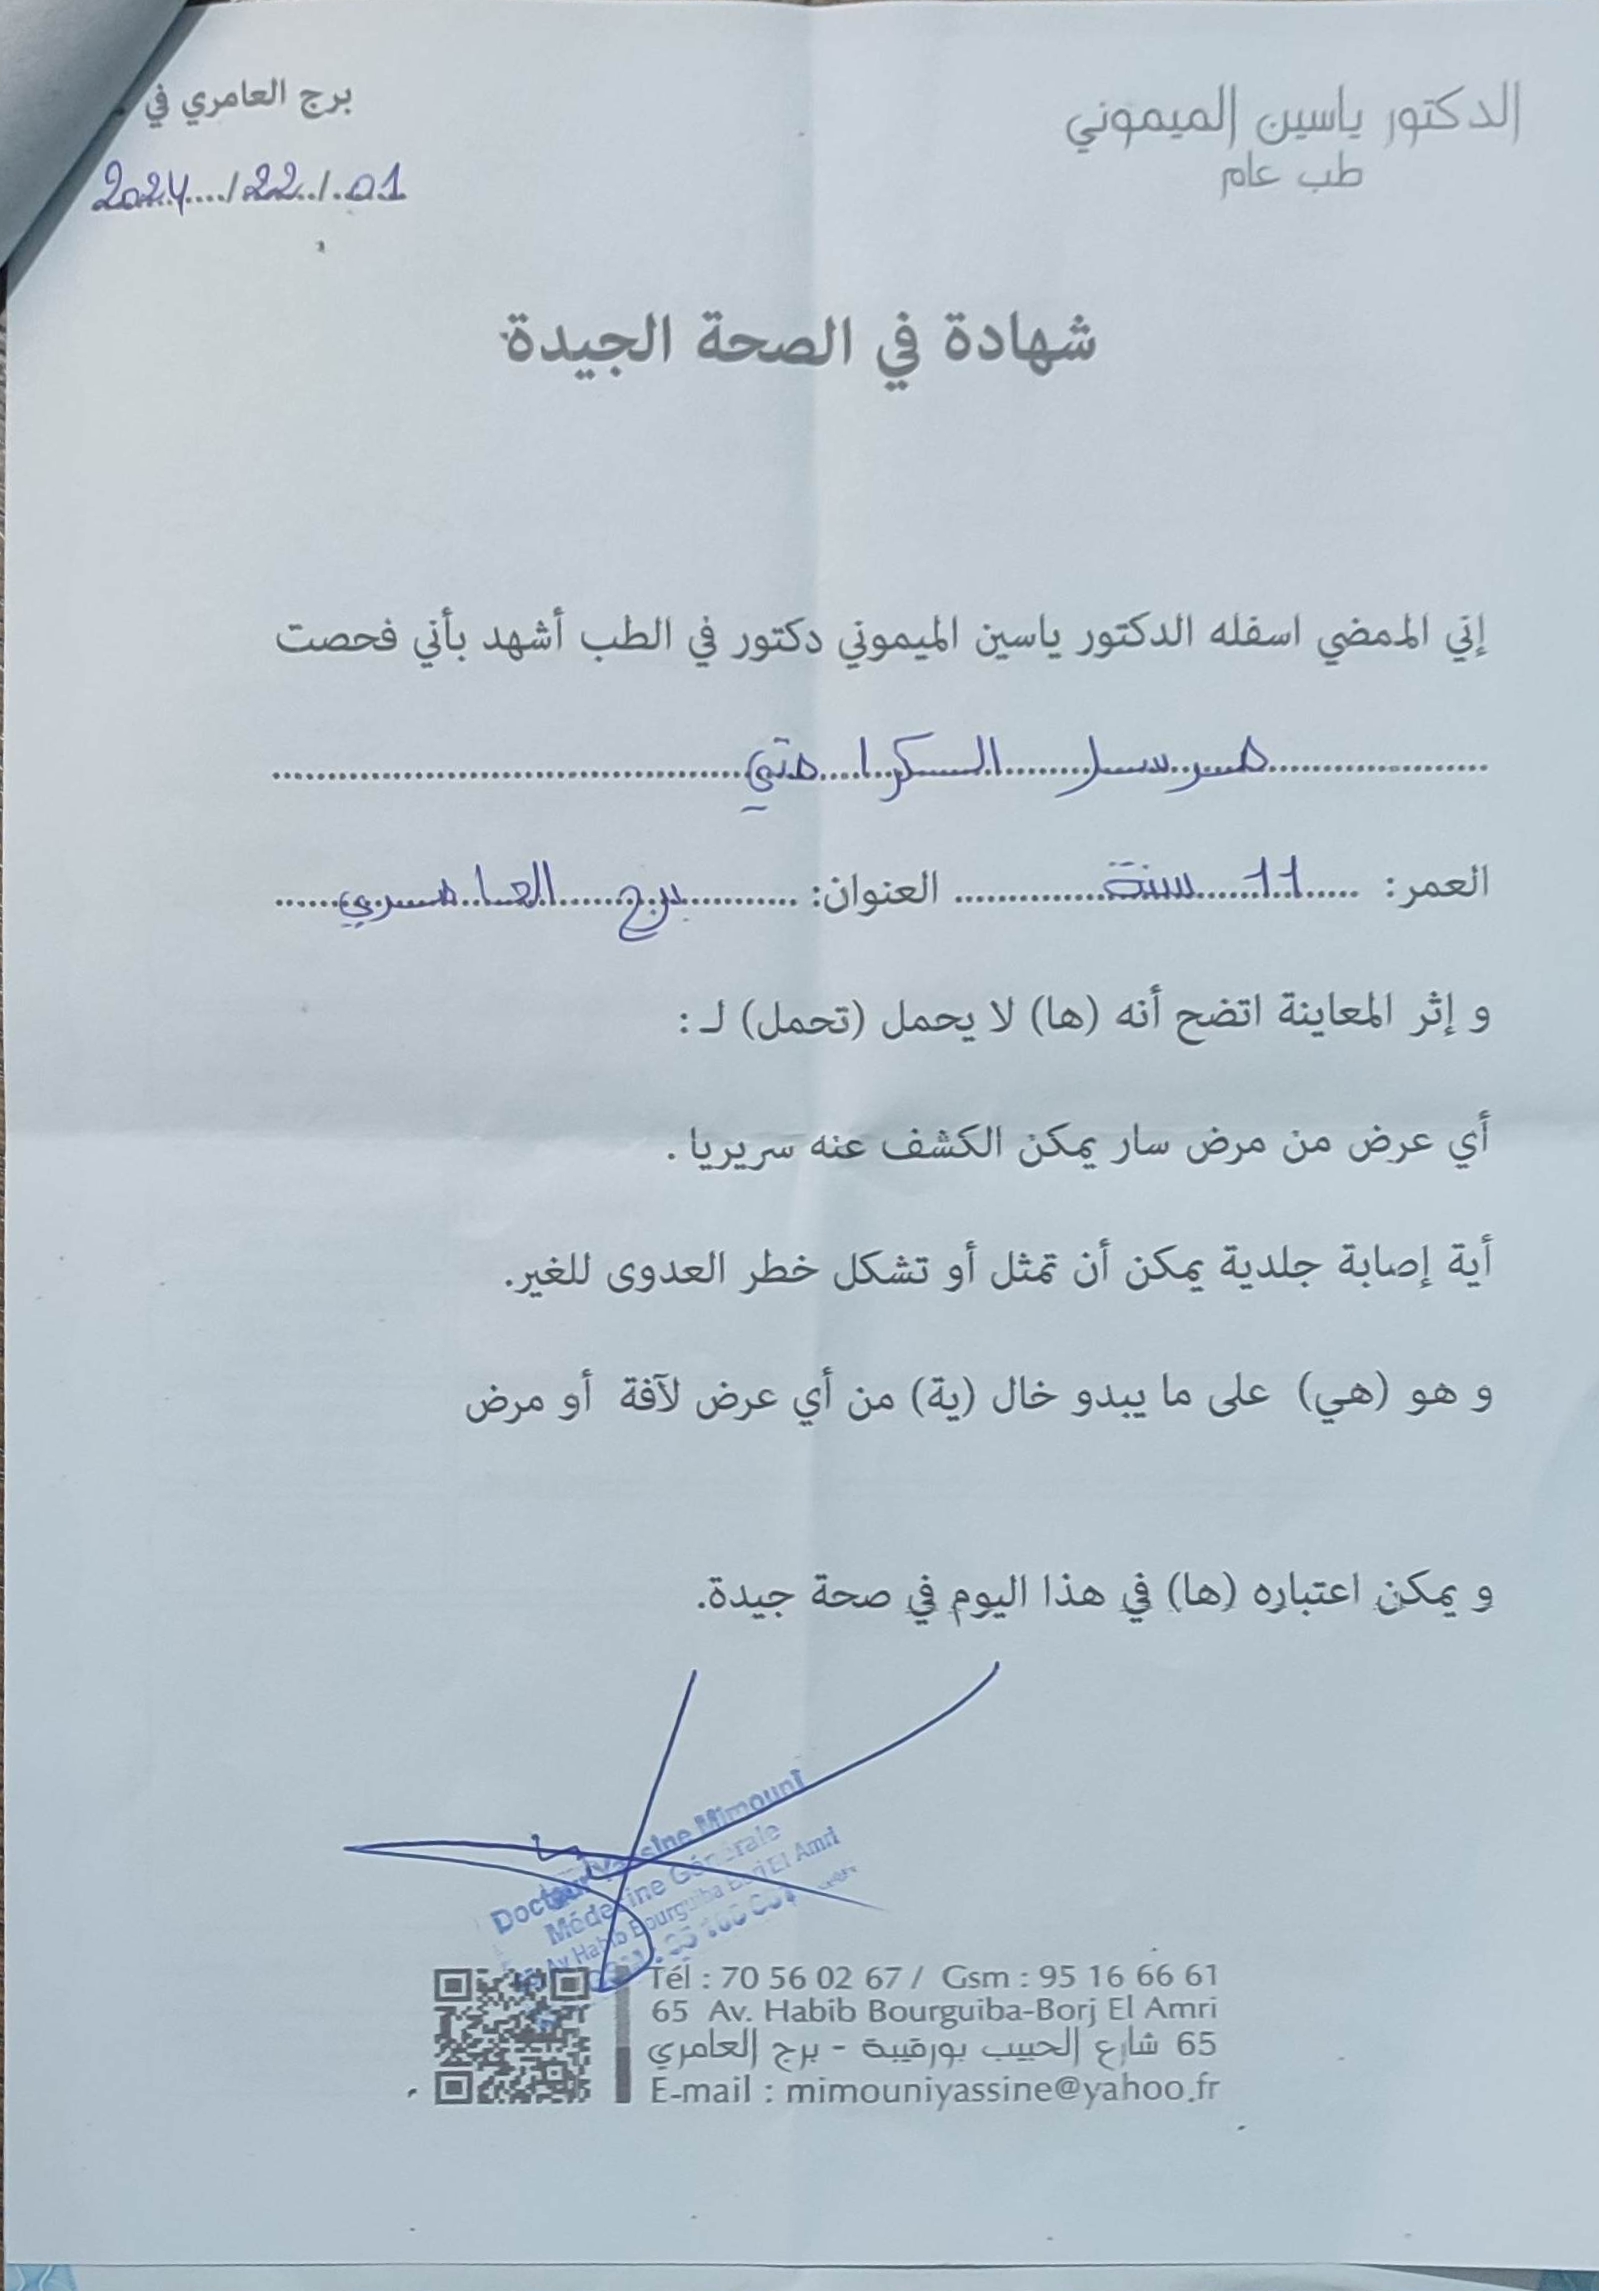 الدكتور ياسين الميموني
طب عام
برج العامري في
2024/22/01
شهادة في الصحة الجيدة
إني الممضي اسفله الدكتور ياسين الميموني دكتور في الطب أشهد بأني فحصت
السكرامتي
العمر: 11 سنة العنوان: برج العامري
و إثر المعاينة اتضح أنه (ها) لا يحمل (تحمل) لـ :
أي عرض من مرض سار يمكن الكشف عنه سريريا .
أية إصابة جلدية يمكن أن تمثل أو تشكل خطر العدوى للغير.
و هو (هي) على ما يبدو خال (ية) من أي عرض لآفة أو مرض
و يمكن اعتباره (ها) في هذا اليوم في صحة جيدة.
Docteur Yassine Mimouni
Médecine Générale
Av Habib Bourguiba Borj El Amri
Tél : 70 56 02 67 / Gsm : 95 16 66 61
65 Av. Habib Bourguiba-Borj El Amri
65 شارع الحبيب بورقيبة - برج العامري
E-mail : mimouniyassine@yahoo.fr